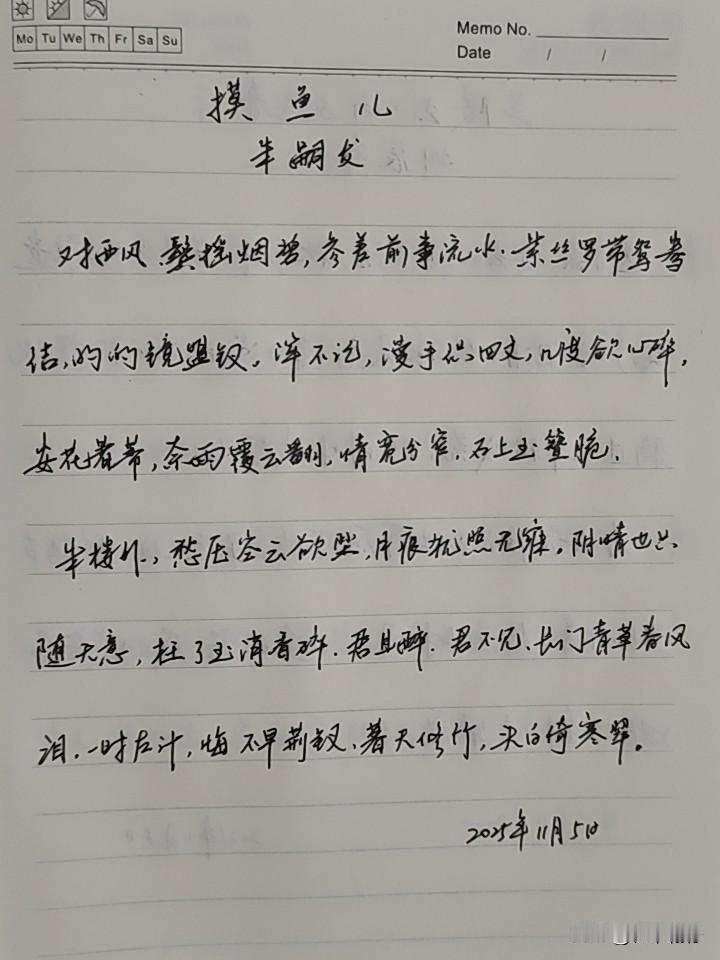 Mo Tu We Th Fr Sa Su
Memo No.
Date / /
摸鱼儿
牟嗣发
对西风鬓摇烟碧,参差前事流水.紫丝罗带鸳鸯
结,的的镜盟钗。浑不记,漫手织回文,几度欲心碎,
安花着蒂,奈雨覆云翻,情宽分窄,石上玉簪脆.
半楼外,愁压空云欲坠,月痕犹照无寐。阴晴也只
随天意,枉了玉消香碎.君且醉.君不见、长门青草春风
泪.一时左计,悔不早荆钗、暮天修竹,头白倚寒翠。
2025年11月5日